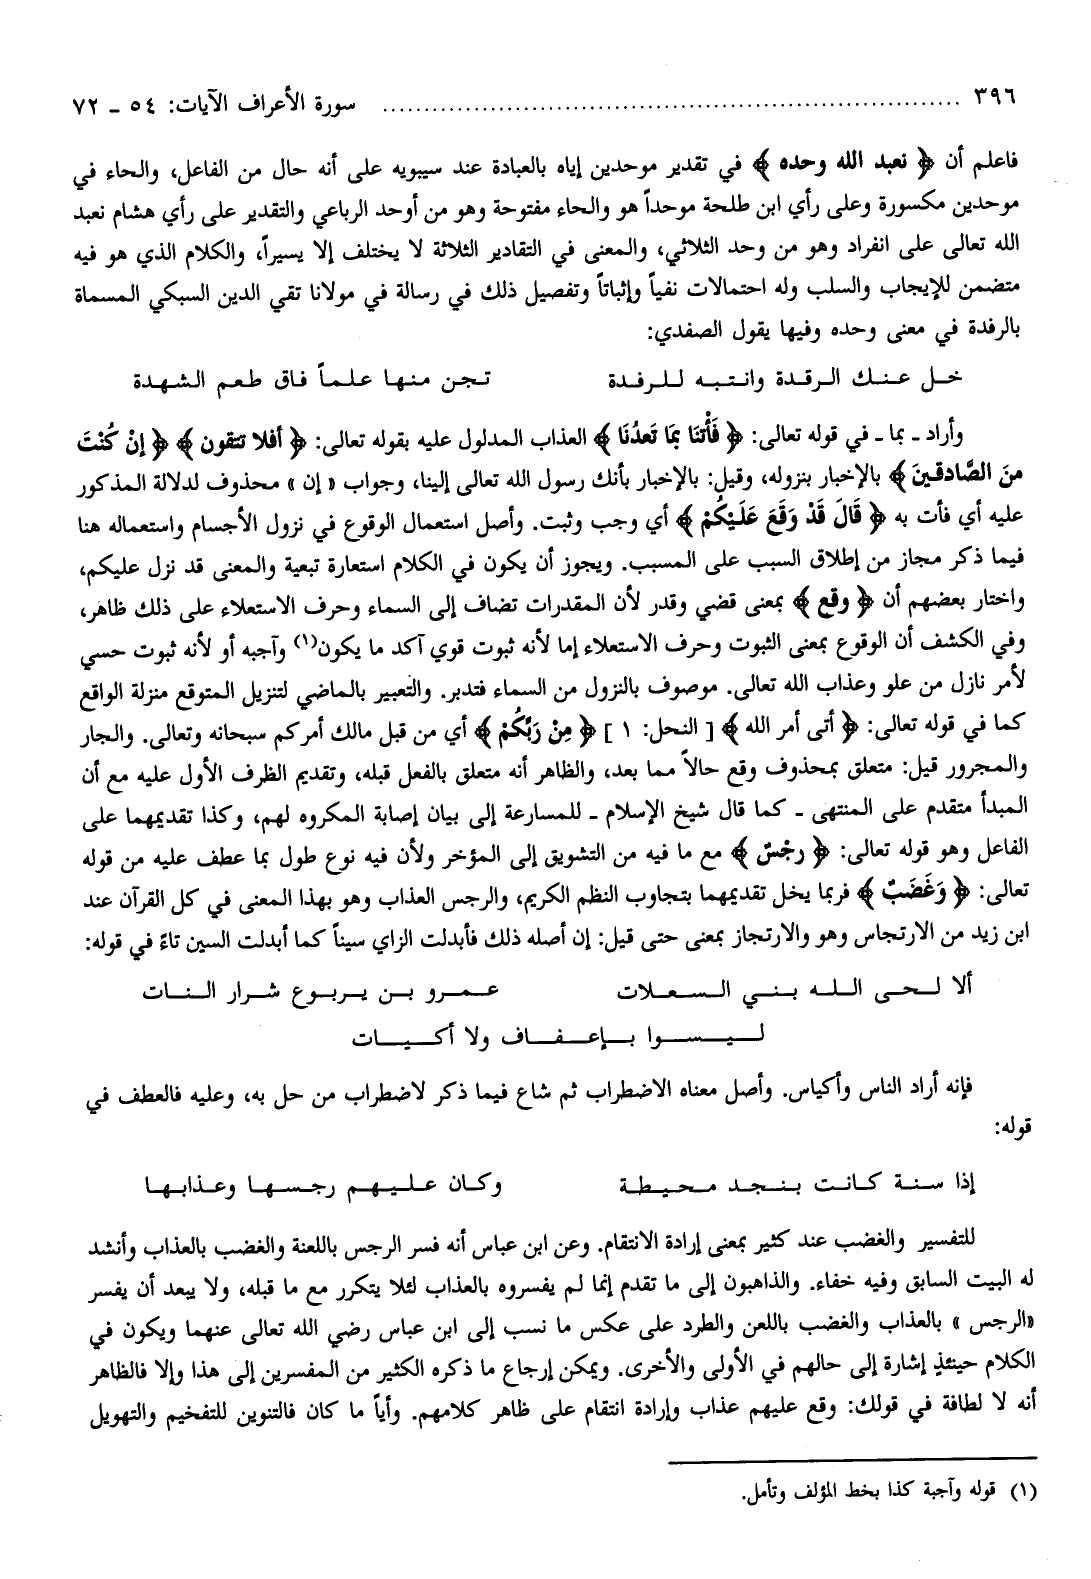 ٣٩٦ ........................................................ سورة الأعراف الآيات: ٥٤ ـ ٧٢
فاعلم أن ﴿ نعبد الله وحده ﴾ في تقدير موحدين إياه بالعبادة عند سيبويه على أنه حال من الفاعل، والحاء في
موحدين مكسورة وعلى رأي ابن طلحة موحداً هو والحاء مفتوحة وهو من أوحد الرباعي والتقدير على رأي هشام نعبد
الله تعالى على انفراد وهو من وحد الثلاثي، والمعنى في التقادير الثلاثة لا يختلف إلا يسيراً، والكلام الذي هو فيه
متضمن للإيجاب والسلب وله احتمالات نفياً وإثباتاً وتفصيل ذلك في رسالة في مولانا تقي الدين السبكي المسماة
بالرفدة في معنى وحده وفيها يقول الصفدي:
خل عنك الرقدة وانتبه للرفدة تجن منها علماً فاق طعم الشهدة
وأراد ـ بما ـ في قوله تعالى: ﴿ فَأْتنَا بمَا تَعدُنَا ﴾ العذاب المدلول عليه بقوله تعالى: ﴿ أفلا تتقون ﴾ ﴿ إنْ كُنْتَ
منَ الصَّادقينَ ﴾ بالإخبار بنزوله، وقيل: بالإخبار بأنك رسول الله تعالى إلينا، وجواب « إن » محذوف لدلالة المذكور
عليه أي فأت به ﴿ قَالَ قَدْ وَقَعَ عَلَيكُمْ ﴾ أي وجب وثبت. وأصل استعمال الوقوع في نزول الأجسام واستعماله هنا
فيما ذكر مجاز من إطلاق السبب على المسبب. ويجوز أن يكون في الكلام استعارة تبعية والمعنى قد نزل عليكم،
واختار بعضهم أن ﴿ وقع ﴾ بمعنى قضي وقدر لأن المقدرات تضاف إلى السماء وحرف الاستعلاء على ذلك ظاهر،
وفي الكشف أن الوقوع بمعنى الثبوت وحرف الاستعلاء إما لأنه ثبوت قوي آكد ما يكون(١) وآجبه أو لأنه ثبوت حسي
لأمر نازل من علو وعذاب الله تعالى. موصوف بالنزول من السماء فتدبر. والتعبير بالماضي لتنزيل المتوقع منزلة الواقع
كما في قوله تعالى: ﴿ أتى أمر الله ﴾ [ النحل: ١ ] ﴿ مِنْ رَبِّكُمْ ﴾ أي من قبل مالك أمركم سبحانه وتعالى. والجار
والمجرور قيل: متعلق بمحذوف وقع حالاً مما بعد، والظاهر أنه متعلق بالفعل قبله، وتقديم الظرف الأول عليه مع أن
المبدأ متقدم على المنتهى ـ كما قال شيخ الإسلام ـ للمسارعة إلى بيان إصابة المكروه لهم، وكذا تقديمهما على
الفاعل وهو قوله تعالى: ﴿ رجْسٌ ﴾ مع ما فيه من التشويق إلى المؤخر ولأن فيه نوع طول بما عطف عليه من قوله
تعالى: ﴿ وَغَضَبٌ ﴾ فربما يخل تقديمهما بتجاوب النظم الكريم، والرجس العذاب وهو بهذا المعنى في كل القرآن عند
ابن زيد من الارتجاس وهو والارتجاز بمعنى حتى قيل: إن أصله ذلك فأبدلت الزاي سيناً كما أبدلت السين تاءً في قوله:
ألا لحى الله بني السعلات عمرو بن يربوع شرار النات
ليسوا بإعفاف ولا أكيات
فإنه أراد الناس وأكياس. وأصل معناه الاضطراب ثم شاع فيما ذكر لاضطراب من حل به، وعليه فالعطف في
قوله:
إذا سنة كانت بنجد محيطة وكان عليهم رجسها وعذابها
للتفسير والغضب عند كثير بمعنى إرادة الانتقام. وعن ابن عباس أنه فسر الرجس باللعنة والغضب بالعذاب وأنشد
له البيت السابق وفيه خفاء. والذاهبون إلى ما تقدم إنما لم يفسروه بالعذاب لئلا يتكرر مع ما قبله، ولا يبعد أن يفسر
«الرجس » بالعذاب والغضب باللعن والطرد على عكس ما نسب إلى ابن عباس رضي الله تعالى عنهما ويكون في
الكلام حينئذٍ إشارة إلى حالهم في الأولى والأخرى. ويمكن إرجاع ما ذكره الكثير من المفسرين إلى هذا وإلا فالظاهر
أنه لا لطافة في قولك: وقع عليهم عذاب وإرادة انتقام على ظاهر كلامهم. وأياً ما كان فالتنوين للتفخيم والتهويل
(١) قوله وآجبة كذا بخط المؤلف وتأمل.